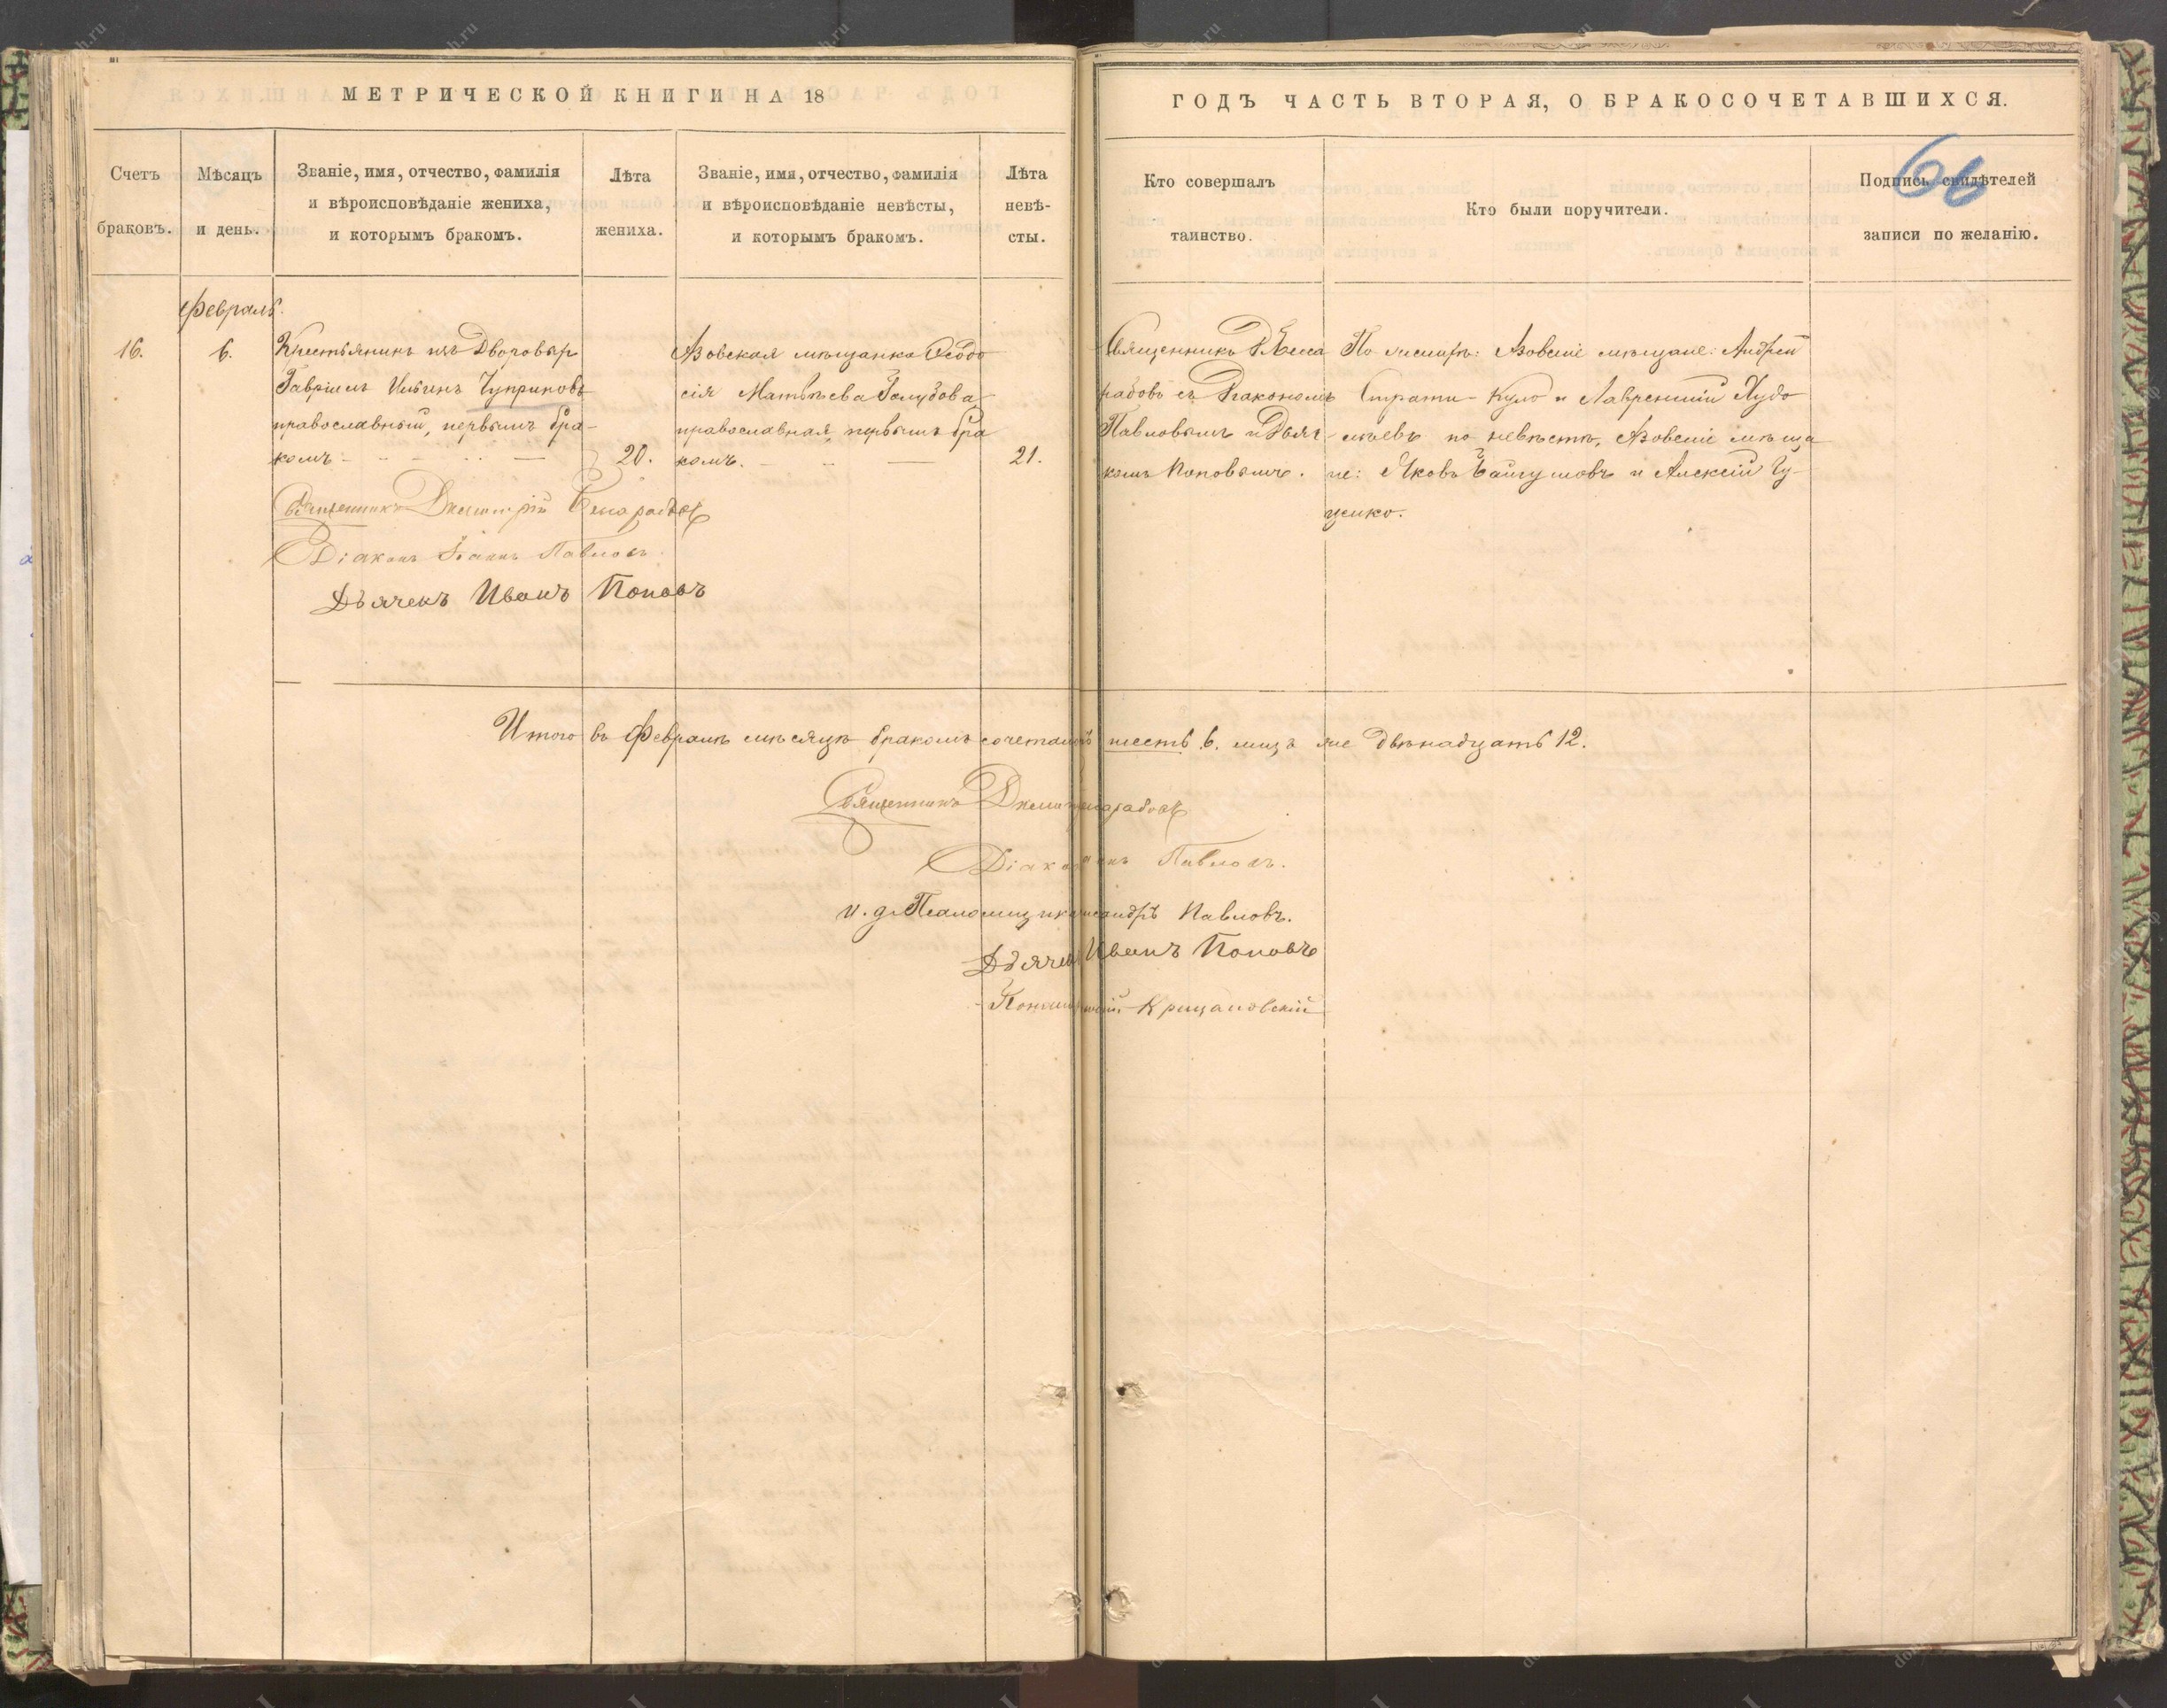 МЕТРИЧЕСКОЙ КНИГИ НА 18
ГОДЪ ЧАСТЬ ВТОРАЯ, О БРАКОСОЧЕТАВШИХСЯ.
Счетъ
браковъ.
Мѣсяцъ
и день.
Званіе, имя, отчество, фамилія
и вѣроисповѣданіе жениха,
и которымъ бракомъ.
Лѣта
жениха.
Званіе, имя, отчество, фамилія
и вѣроисповѣданіе невѣсты,
и которымъ бракомъ.
Лѣта
невѣ-
сты.
Кто совершалъ
таинство.
Кто были поручители.
Подпись свидѣтелей
записи по желанію.
66
Февраль.
16.
6.
Крестьянинъ изъ Дворовыхъ
Гавріилъ Ильинъ Чуприновъ
православный, первымъ бра-
комъ
20.
Азовская мѣщанка Ѳеодо
сія Матвѣева Голубова
православная, первымъ бра
комъ.
21.
Священникъ
рабовъ съ Діакономъ
Павловымъ и Дьяч-
комъ Поповымъ.
По женихѣ: Азовскіе мѣщане: Андрей
Страти-Куло и Лаврентій Худо
по невѣстѣ, Азовскіе мѣща
не: Яковъ и Алексій Гу-
ценко.
Священникъ Димитрій
Діаконъ Іоаннъ Павловъ.
Дьячекъ Иванъ Поповъ
Итого въ Февралѣ мѣсяцѣ бракомъ шесть 6. лицъ же двѣнадцать 12.
Священникъ
Павловъ.
и. д. Павловъ.
Иванъ Поповъ
Крицановскій